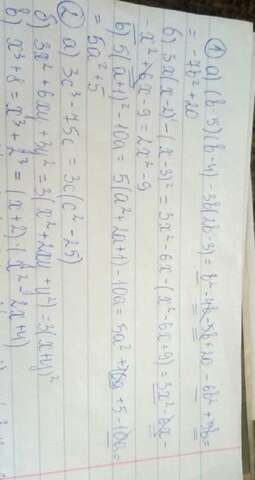 ① а) (b-5)(b-4) - 3b(2b-3) = b²-4b-5b+20 - 6b²+9b=
= -7b²+20
б) 3x(x-2)-(x-3)² = 3x²-6x-(x²-6x+9)=3x²-6x-
-x²+6x-9=2x²-9
в) 5(a+1)²-10a=5(a²+2a+1)-10a=5a²+10a+5-10a=
= 5a²+5
② а) 3c³-75c=3c(c²-25)
б) 3x²+6xy+3y²=3(x²+2xy+y²)=3(x+y)²
в) x³+8=x³+2³=(x+2)·(x²-2x+4)